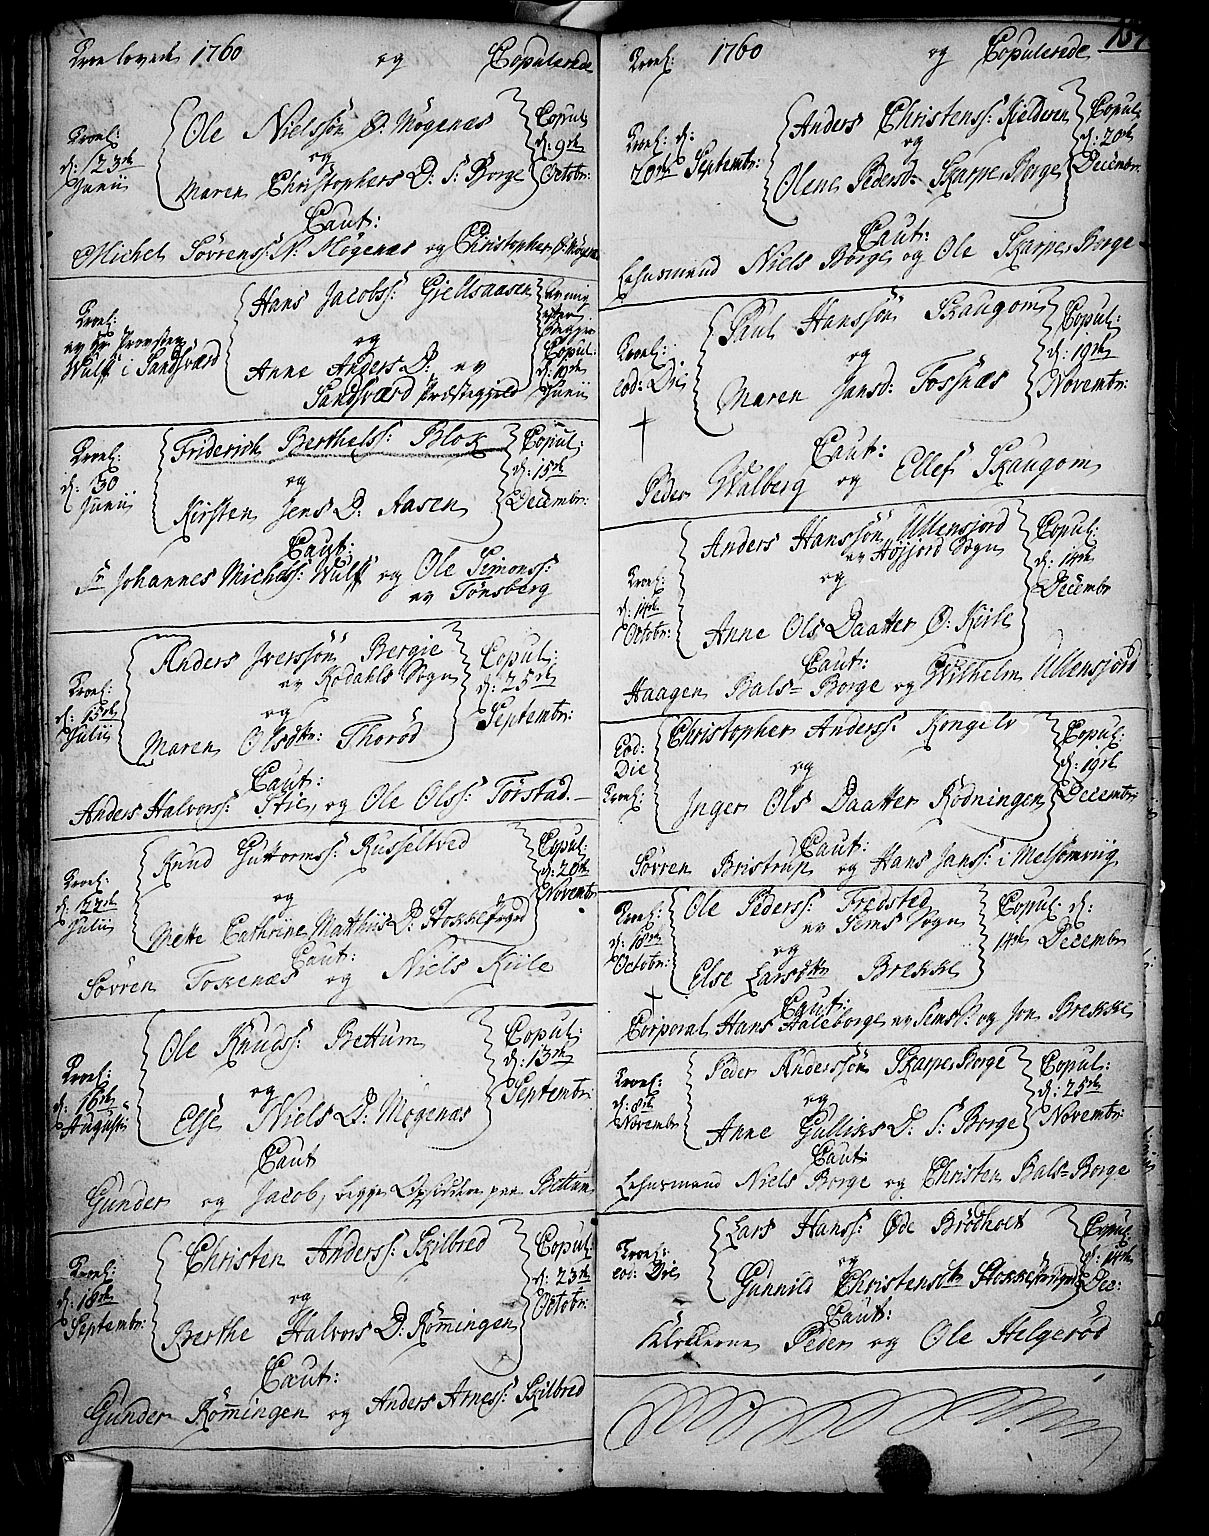 Troelovede 1760 og Copulerede
Troel:
d: 23de
Junii
Ole Nielssön Ø: Mögenæs
og
Maren Christophers D: S: Borge
Copul:
d: 9de
Octobr:
Caut:
Michel Sövrenss: N: Mögenæs og Christopher Ø: Mögenæs
Troel:
af Hr Provsten
Wulff i Sandsværd
Hans Jacobss: Giellsaasen
og
Anne Anders D: af
Sandsværd Præstegield
Copul:
d: 10de
Junii
Troel:
d: 30
Junii
Friderich Berthelss: Blok
og
Kirsten Jens D: Aasen
Copul:
d: 15de
Decembr:
Caut:
Sr Johannes Michelss: Wulff og Ole Simonss:
af Tönsberg
Troel:
d: 15de
Julii
Anders Iverssön Bergie
af Rodahls Sogn
og
Maren Olsdttr: Thoröd
Copul:
d: 25de
Septembr:
Caut:
Anders Halvorss: Stie, og Ole Olss: Torstad.
Troel:
d: 22de
Julii
Knud Guttormss: Russeltved
og
Mette Cathrine Matthiis D: Stokke
Copul:
d: 20de
Novembr
Caut:
Sövren Tokenæs og Niels Kiile
Troel:
d: 16de
Augusti
Ole Knudss: Bettum
og
Else Niels D: Mögenæs
Copul:
d: 13de
Septembr:
Caut
Gunder og Jacob, begge Opsiddere paa Bettum
Troel:
d: 18de
Septembr:
Christen Anderss: Skilbred
og
Berthe Halvors D: Römingen
Copul:
d: 23de
Octobr:
Caut:
Gunder Römingen og Anders Arness: Skilbred
Troel: 1760 og Copulerede 167
Troel: d:
20de Septembr:
Anders Christenss: Kielderen
og
Olene Pedersd: Skarpe Borge
Copul:
d: 20de
Decembr:
Caut:
Lehnsmand Niels Borge og Ole Skarpe Borge
Troel:
eod: Die
Paul Hanssön Skaugom
og
Maren Jansd: Fossnæs
Copul:
d: 19de
Novembr:
Caut:
Peder Walberg og Ellef Skaugom
Troel:
d: 14de
Octobr:
Anders Hanssön Ullensiord
af Höjjord Sogn
og
Anne Ols Daatter Ø: Kiile
Copul:
d: 14de
Decembr
Caut:
Haagen Bals-Borge og Wilhelm Ullensjord
Eod:
Die
Troel:
Christopher Anderss: Kongelv
og
Inger Ols Daatter Rödningen
Copul:
d: 19de
Decembr:
Caut:
Sövren Bristrup og Hans Janss: i Melsomviig
Troel:
d: 18de
Octobr:
Ole Pederss: Fredsted
af Sems Sogn
og
Else Larsdttr Brekke
Copul: d:
14de Decembr
Caut:
Corporal Hans Haleborge af Sems S: og Jon Brekke
Troel:
d: 8de
Novembr
Peder Anderssön Skarpe Borge
og
Anne Gulliks D: S: Borge
Copul:
d: 25de
Novembr:
Caut:
Lehnsmand Niels Borge og Christen Bals-Borge
Troel:
eod: Die
Lars Hanss: Øde Brödholt
og
Gunnild Christensdtr Stokke
Copul:
d: 14de
Dec:
Caut:
Klokkerne Peder og Ole Helgeröd